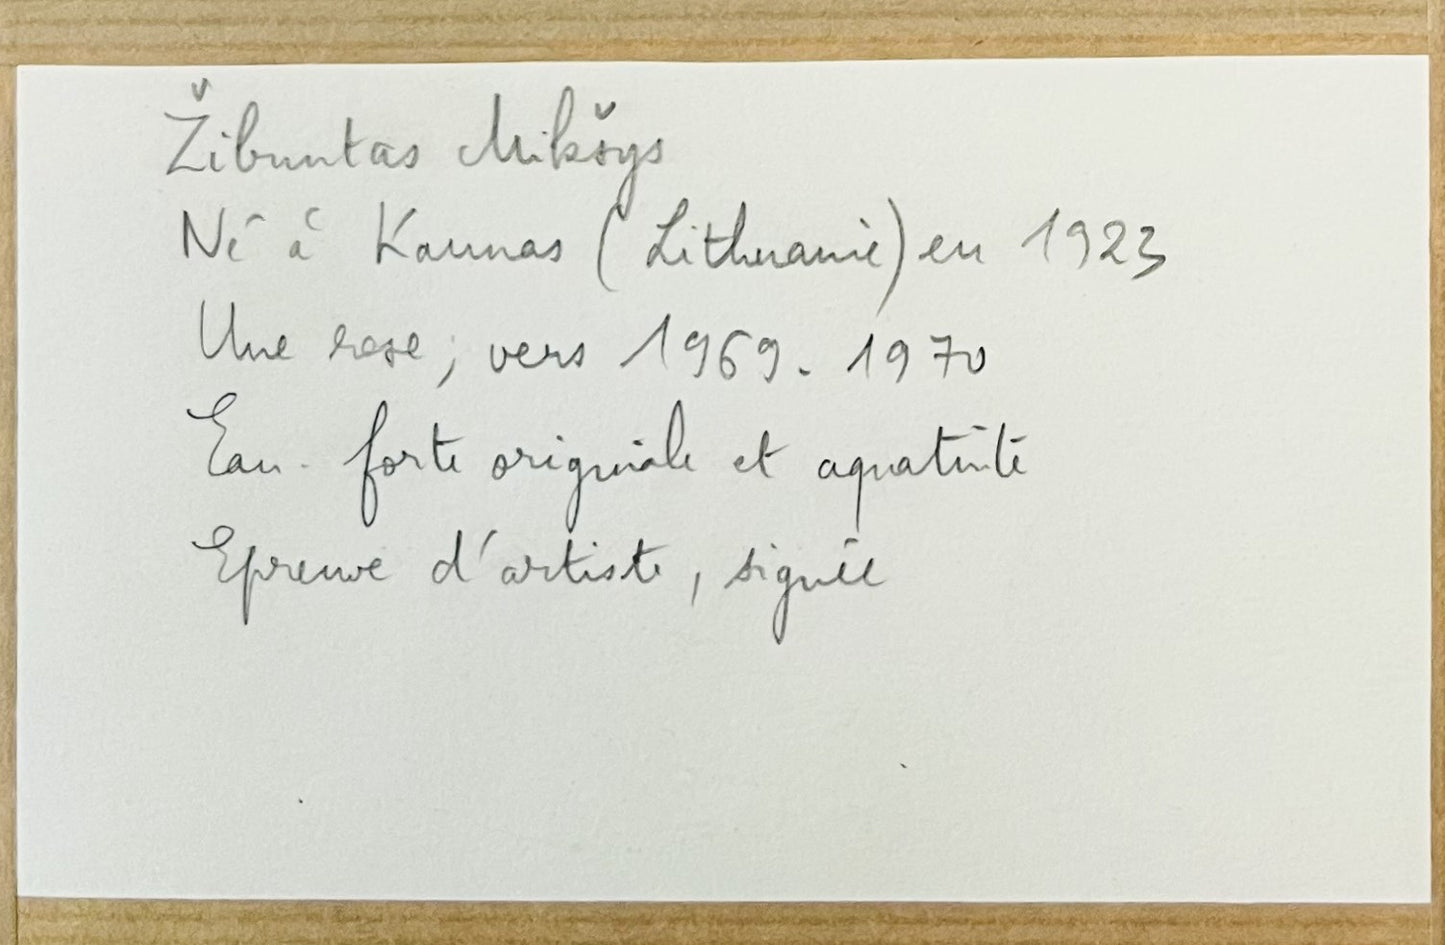 Žibuntas Mikšys
Né à Kaunas (Lithuanie) en 1923
Une rose ; vers 1969 - 1970
Eau-forte originale et aquatinte
Epreuve d'artiste, signée